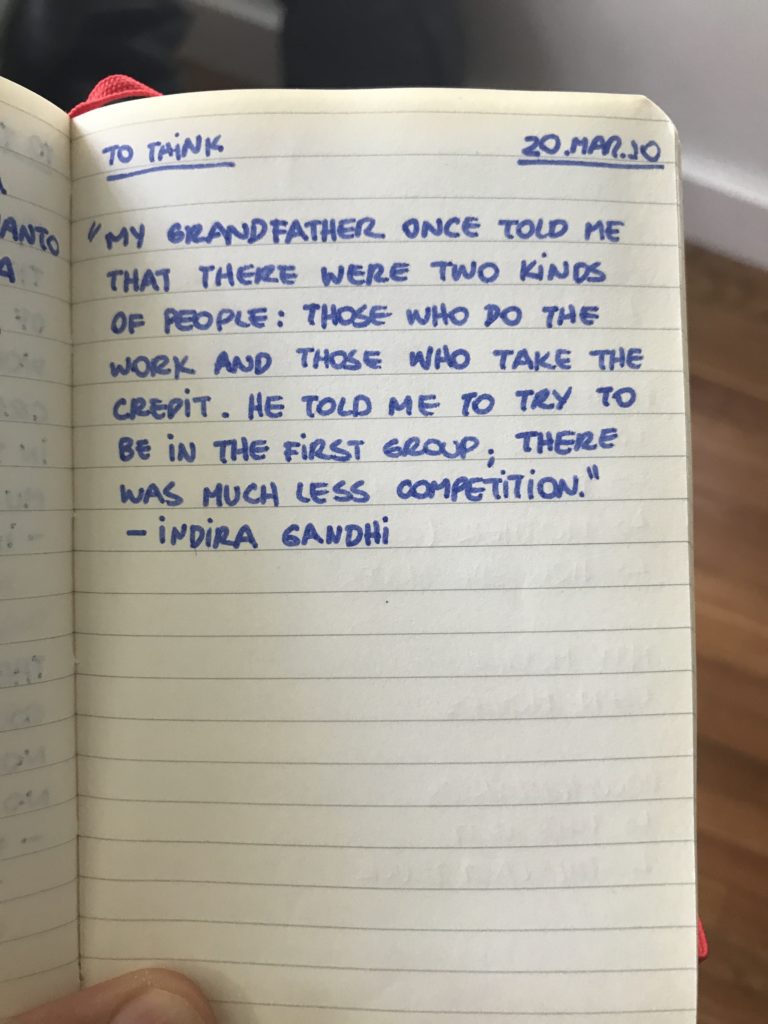 TO THINK
20.MAR.10
"MY GRANDFATHER ONCE TOLD ME
THAT THERE WERE TWO KINDS
OF PEOPLE: THOSE WHO DO THE
WORK AND THOSE WHO TAKE THE
CREDIT. HE TOLD ME TO TRY TO
BE IN THE FIRST GROUP; THERE
WAS MUCH LESS COMPETITION."
- INDIRA GANDHI